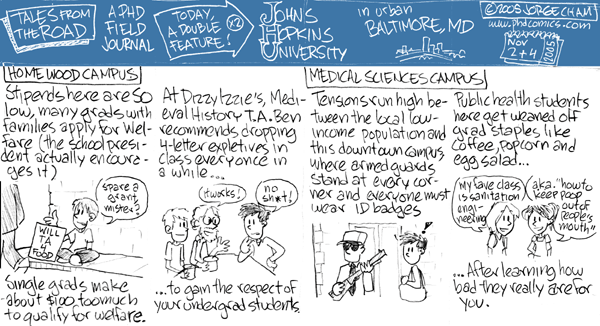 TALES FROM
THE ROAD
A PHD
FIELD
JOURNAL
TODAY,
A DOUBLE
FEATURE!
x2
JOHNS
HOPKINS
UNIVERSITY
in urban
BALTIMORE, MD
©2005 JORGE CHAM
www.phdcomics.com
Nov
2+4
2005
HOMEWOOD CAMPUS
Stipends here are SO
low, many grads with
families apply for Wel-
fare (the school presi-
dent actually encoura-
ges it)
spare a
grant
mister?
WILL
TA
4
FOOD
Single grads make
about $100 too much
to qualify for welfare.
At Dizzy Izzie's, Medi-
eval History T.A. Ben
recommends dropping
4-letter expletives in
class everyonce in
a while...
it works!
no
sh*t!
...to gain the respect of
your undergrad students.
MEDICAL SCIENCES CAMPUS
Tensons run high be-
tween the local low-
income population and
this downtown campus,
where armed guards
stand at every cor-
ner and everyone must
wear ID badges
!
Public health students
here get weaned off
grad staples like
coffee, popcorn and
egg salad...
My fave class
is sanitation
engi-
neering
a.k.a. "how to
keep poop
out of
people's
mouth"
...After learning how
bad they really are for
you.